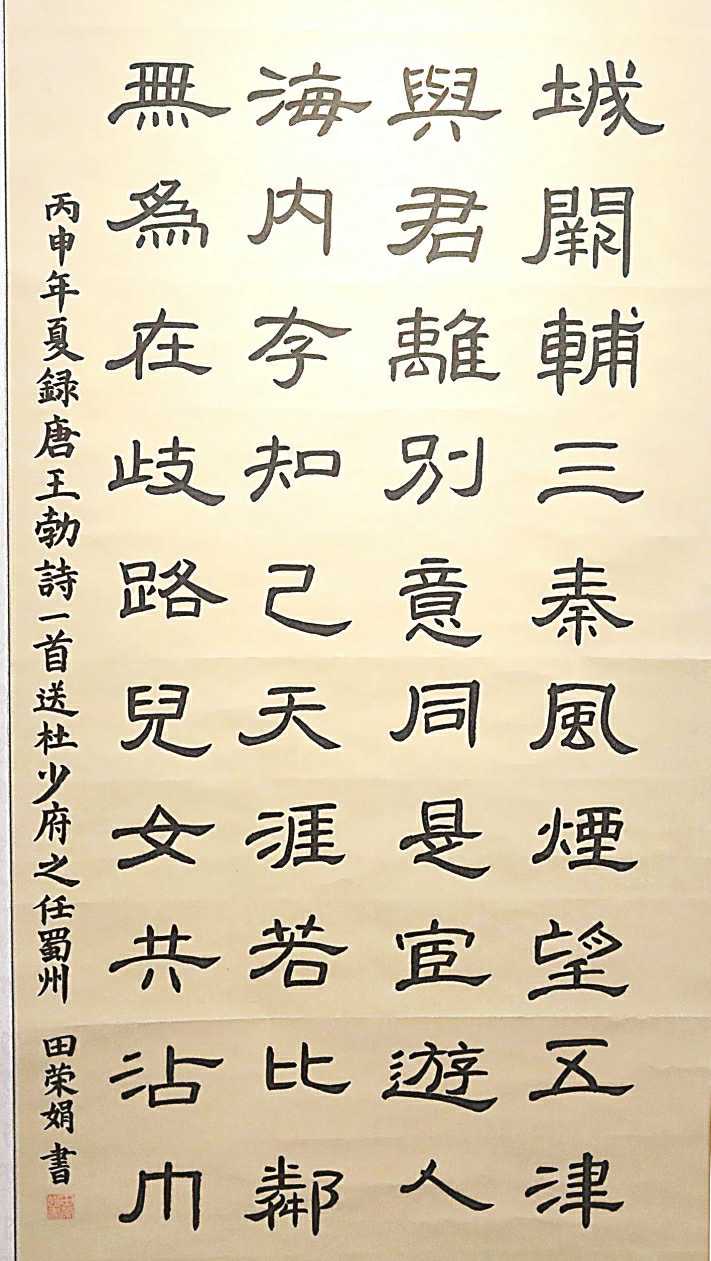 城闕輔三秦風煙望五津
與君離別意同是宦遊人
海内存知己天涯若比鄰
無為在歧路兒女共沾巾
丙申年夏録唐王勃詩一首送杜少府之任蜀州 田荣娟書